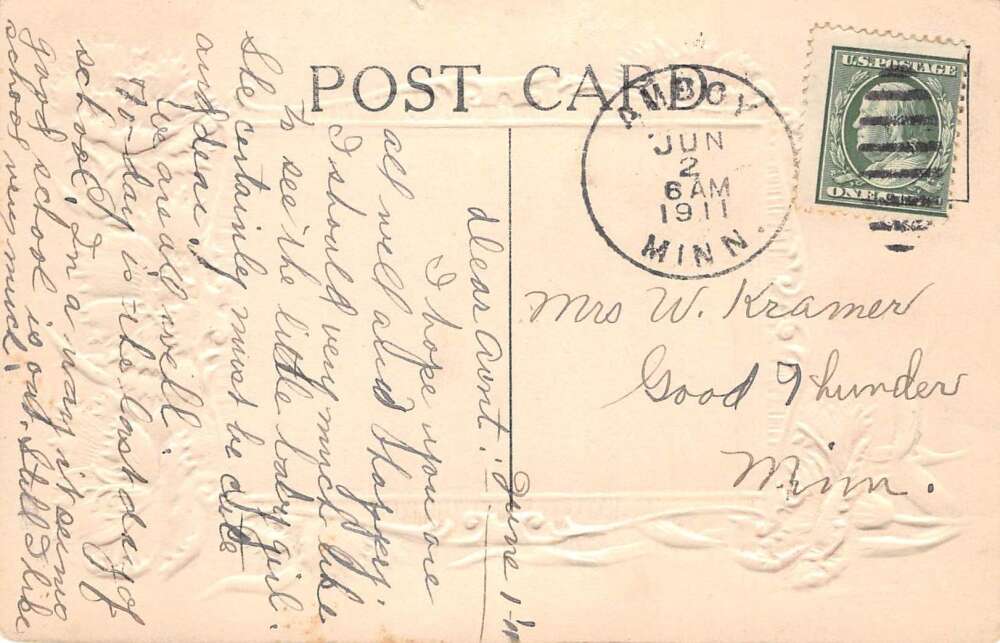 POST CARD
AMBOY
JUN
2
6 AM
1911
MINN.
U.S. POSTAGE
ONE
Mrs W. Kramer
Good Thunder
Minn.
June 1-11
Dear Aunt:
I hope you are
all well and happy.
I should very much like
to see the little baby girl.
She certainly must be cute
and dear.
We are all well.
To-day is the last day of
school. In a way it seems
good school is out. Still I like
school very much.